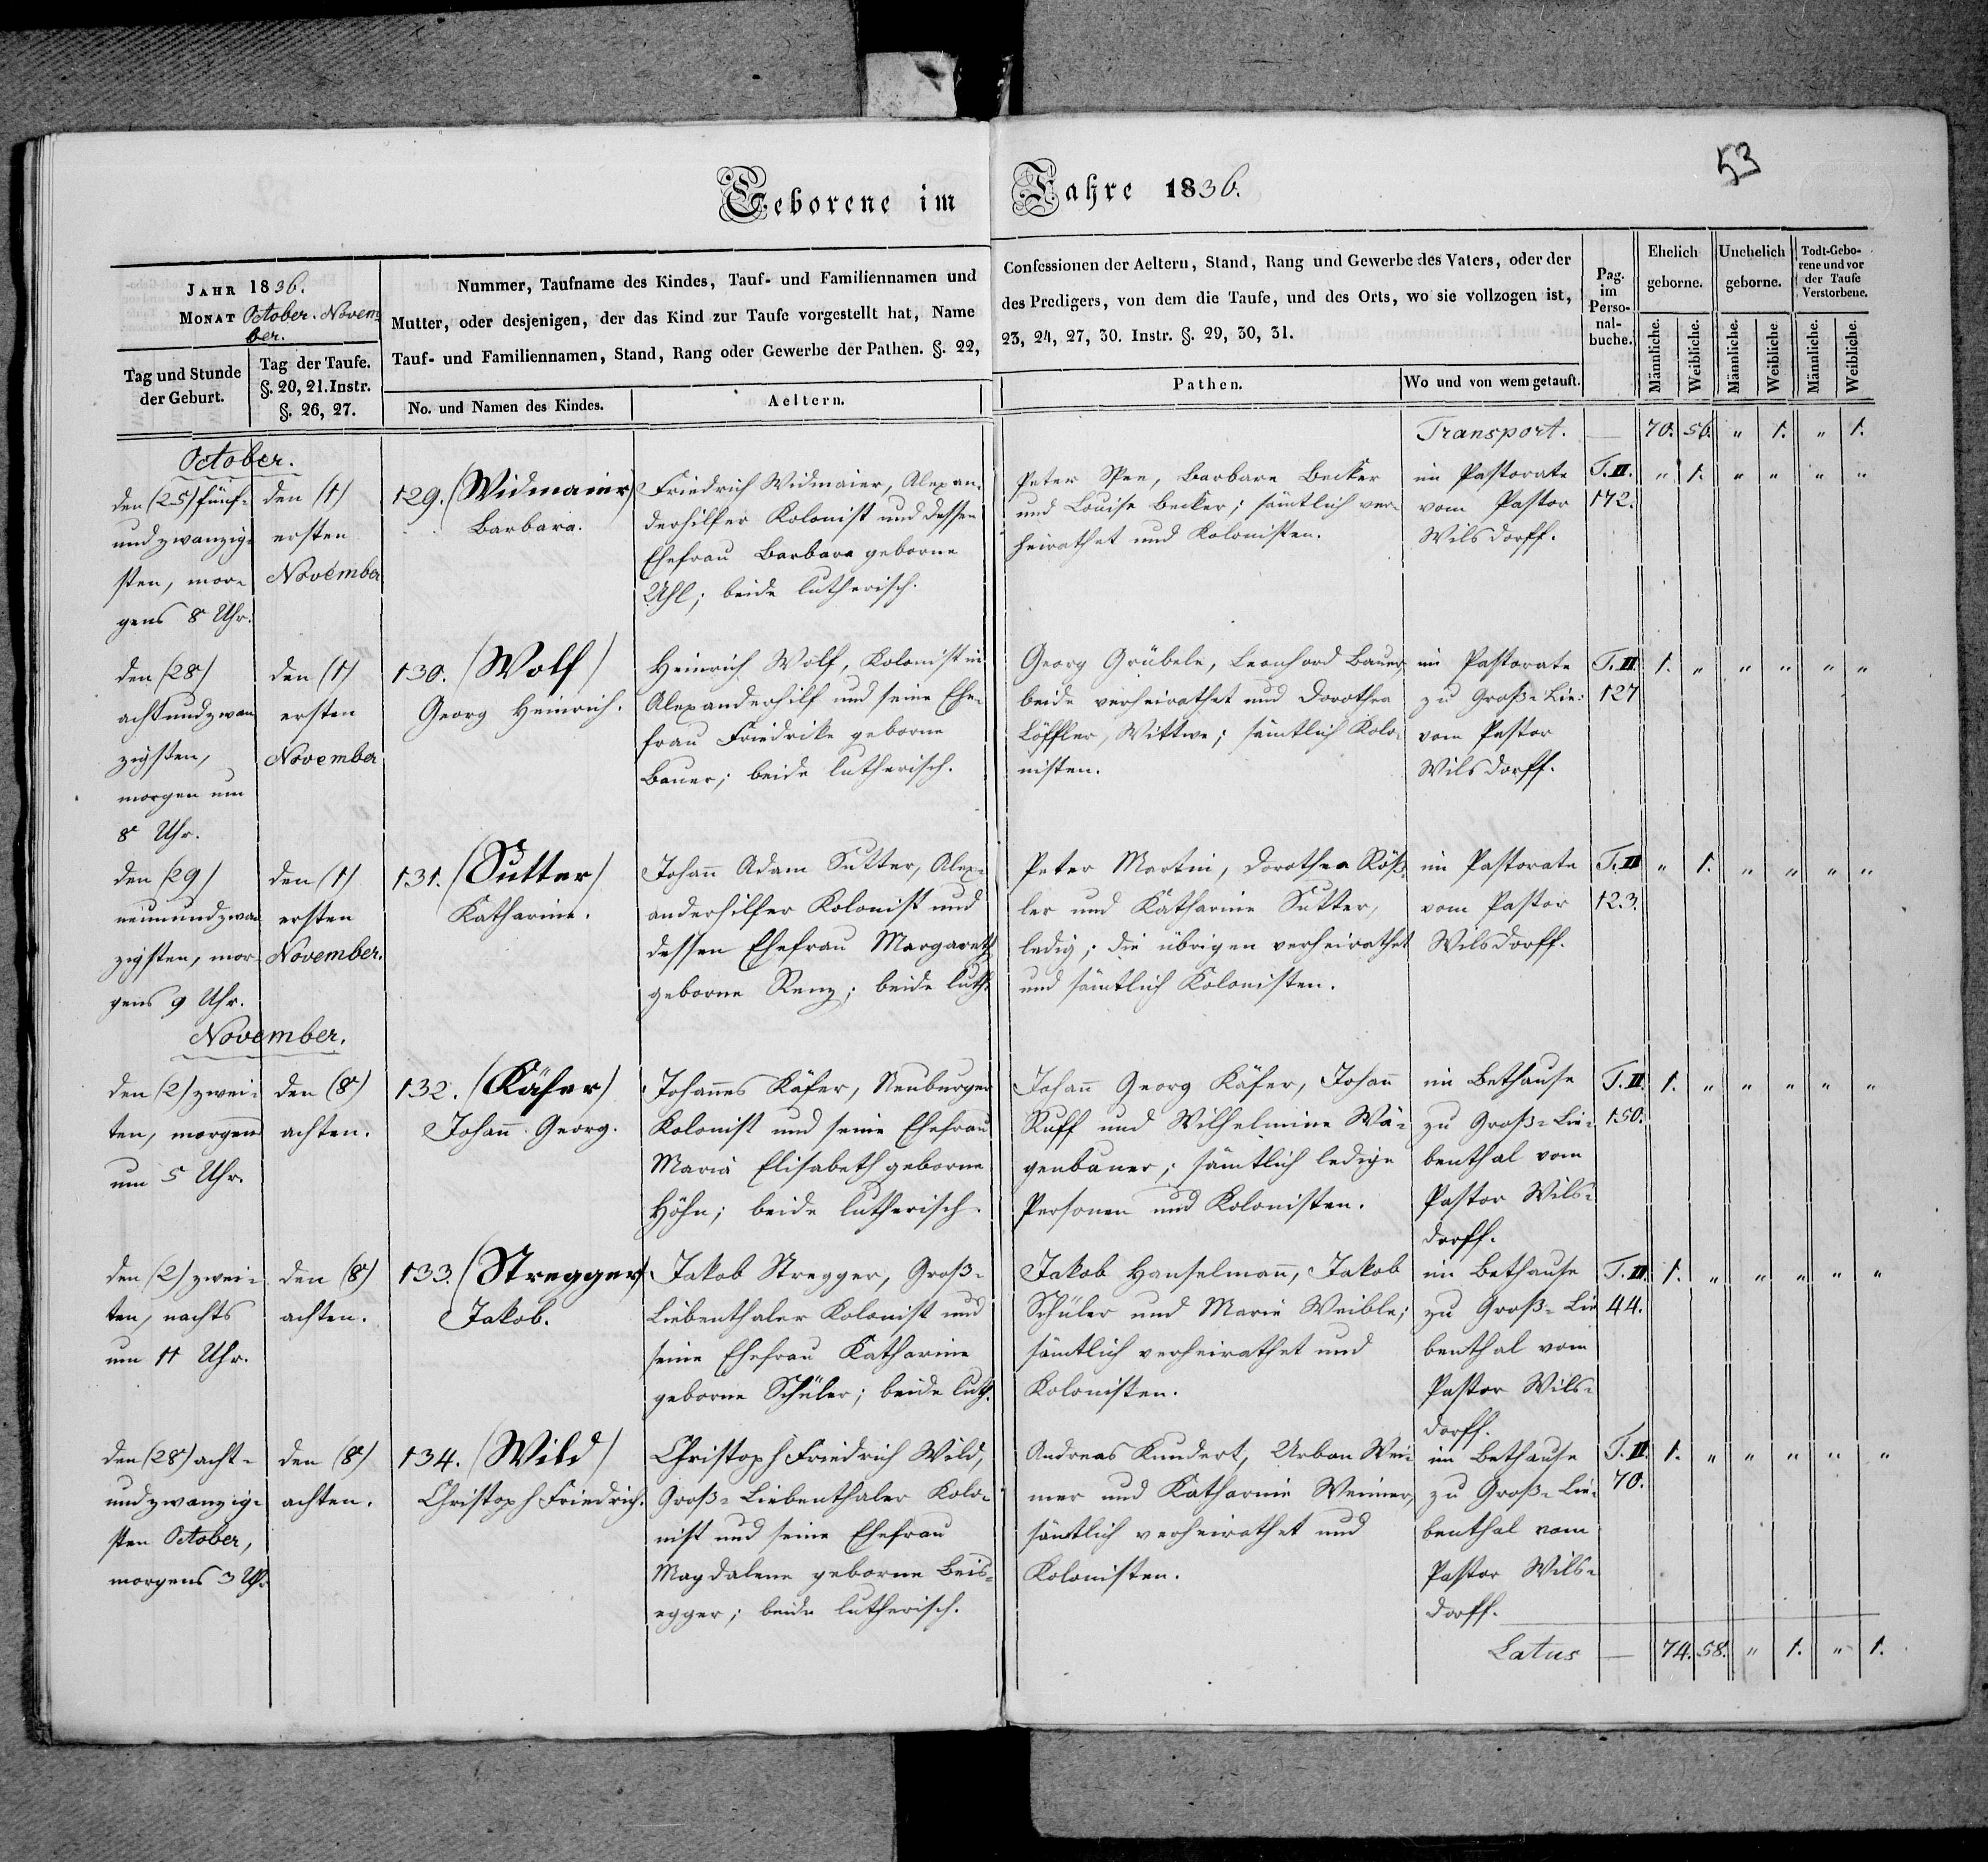 53
Geborene im Jahre 1836.
JAHR 1836.
MONAT October. Novem-
ber.
Tag und Stunde
der Geburt.
Tag der Taufe.
§. 20, 21. Instr.
§. 26, 27.
Nummer, Taufname des Kindes, Tauf- und Familiennamen und
Mutter, oder desjenigen, der das Kind zur Taufe vorgestellt hat, Name
Tauf- und Familiennamen, Stand, Rang oder Gewerbe der Pathen. §. 22,
No. und Namen des Kindes.
Aeltern.
Confessionen der Aeltern, Stand, Rang und Gewerbe des Vaters, oder der
des Predigers, von dem die Taufe, und des Orts, wo sie vollzogen ist,
23, 24, 27, 30. Instr. §. 29, 30, 31.
Pathen.
Wo und von wem getauft.
Pag.
im
Perso-
nal-
buche.
Ehelich
geborne.
Unehelich
geborne.
Todt-Gebo-
rene und vor
der Taufe
Verstorbene.
Männliche.
Weibliche.
Männliche.
Weibliche.
Männliche.
Weibliche.
Transport. — 70. 56. " 1. " 1.
October.
den (25) fünf-
und zwanzig-
sten, mor-
gens 8 Uhr.
den (1)
ersten
November
129. (Widmaier)
Barbara.
Friedrich Widmaier, Alexan-
derhilfer Kolonist und dessen
Ehefrau Barbara geborne
Uhl; beide lutherisch.
Peter Spee, Barbara Becker
und Louise Becker; sämtlich ver-
heirathet und Kolonisten.
im Pastorate
vom Pastor
Wilsdorff.
T. II.
172.
" 1. " " " "
den (28)
acht und zwan
zigsten,
morgen um
8 Uhr.
den (1)
ersten
November
130. (Wolf)
Georg Heinrich.
Heinrich Wolf, Kolonist in
Alexanderhilf und seine Ehe-
frau Friedrike geborne
Bauer; beide lutherisch.
Georg Grübele, Leonhard Bauer,
beide verheirathet und Dorothea
Löffler, Wittwe; sämtlich Kolo-
nisten.
im Pastorate
zu Groß-Lie:
vom Pastor
Wilsdorff.
T. II.
127
1. " " " " "
den (29)
neunundzwan
zigsten, mor-
gens 9 Uhr.
den (1)
ersten
November.
131. (Sutter)
Katharine.
Johañ Adam Sutter, Alex-
anderhilfer Kolonist und
dessen Ehefrau Margareth
geborne Renz; beide luth.
Peter Martin, Dorothea Röß-
ler und Katharine Sutter,
ledig; die übrigen verheirathet
und sämtlich Kolonisten.
im Pastorate
vom Pastor
Wilsdorff.
T. II
123.
" 1. " " " "
November.
den (2) zwei-
ten, morgens
um 5 Uhr.
den (8)
achten.
132. (Käfer)
Johañ Georg.
Johañes Käfer, Neuburger
Kolonist und seine Ehefrau
Maria Elisabeth geborne
Höhn; beide lutherisch.
Johañ Georg Käfer, Johañ
Ruff und Wilhelmine Wä-
genbauer; sämtlich ledige
Personen und Kolonisten.
im Bethause
zu Groß-Lie-
benthal vom
Pastor Wils-
dorff.
T. II.
150.
1. " " " " "
den (2) zwei-
ten, nachts
um 11 Uhr.
den (8)
achten.
133. (Stregger)
Jakob.
Jakob Stregger, Groß-
Liebenthaler Kolonist und
seine Ehefrau Katharine
geborne Schüler; beide luth.
Jakob Hanselmañ, Jakob
Schüler und Marie Weible;
sämtlich verheirathet und
Kolonisten.
im Bethause
zu Groß-Lie
benthal vom
Pastor Wils-
dorff.
T. II.
44.
1. " " " " "
den (28) acht-
und zwanzig-
sten October,
morgens 3 Uhr.
den (8)
achten.
134. (Wild)
Christoph Friedrich.
Christoph Friedrich Wild,
Groß-Liebenthaler Kolo-
nist und seine Ehefrau
Magdalene geborne Beis-
egger; beide lutherisch.
Andreas Kundert, Urban Wei-
mer und Katharine Weimer,
sämtlich verheirathet und
Kolonisten.
im Bethause
zu Groß-Lie-
benthal vom
Pastor Wils-
dorff.
T. II.
70.
1. " " " " "
Latus — 74. 58. " 1. " 1.